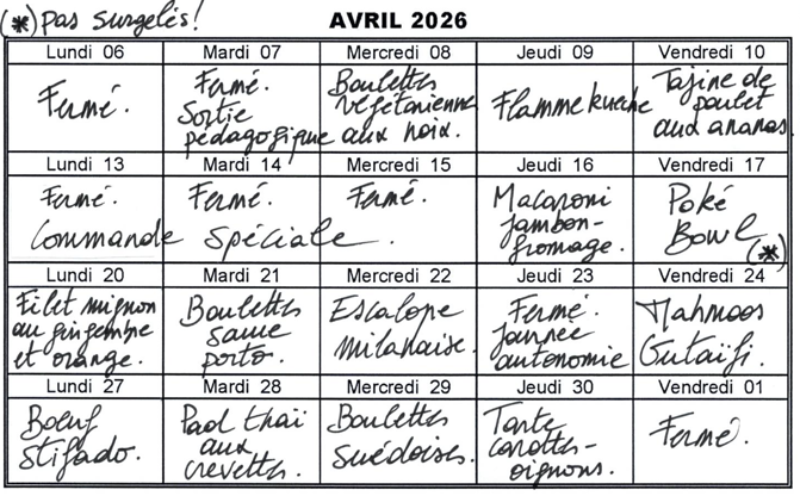 (*) pas surgelés!
AVRIL 2026
Lundi 06
Mardi 07
Mercredi 08
Jeudi 09
Vendredi 10
Fermé.
Fermé.
Sortie
pédagogique
Boulettes
végétarienne
aux noix.
Flammekueche
Tajine de
poulet
aux ananas.
Lundi 13
Mardi 14
Mercredi 15
Jeudi 16
Vendredi 17
Fermé.
Fermé.
Fermé.
Commande spéciale.
Macaroni
jambon-
fromage.
Poké
Bowl
(*)
Lundi 20
Mardi 21
Mercredi 22
Jeudi 23
Vendredi 24
Filet mignon
au gingembre
et orange.
Boulettes
sauce
porto.
Escalope
milanaise.
Fermé.
journée
autonomie
Mahmoos
Gutaïfi.
Lundi 27
Mardi 28
Mercredi 29
Jeudi 30
Vendredi 01
Boeuf
Stifado.
Pad thaï
aux
crevettes.
Boulettes
suédoises.
Tarte
carottes-
oignons.
Fermé.